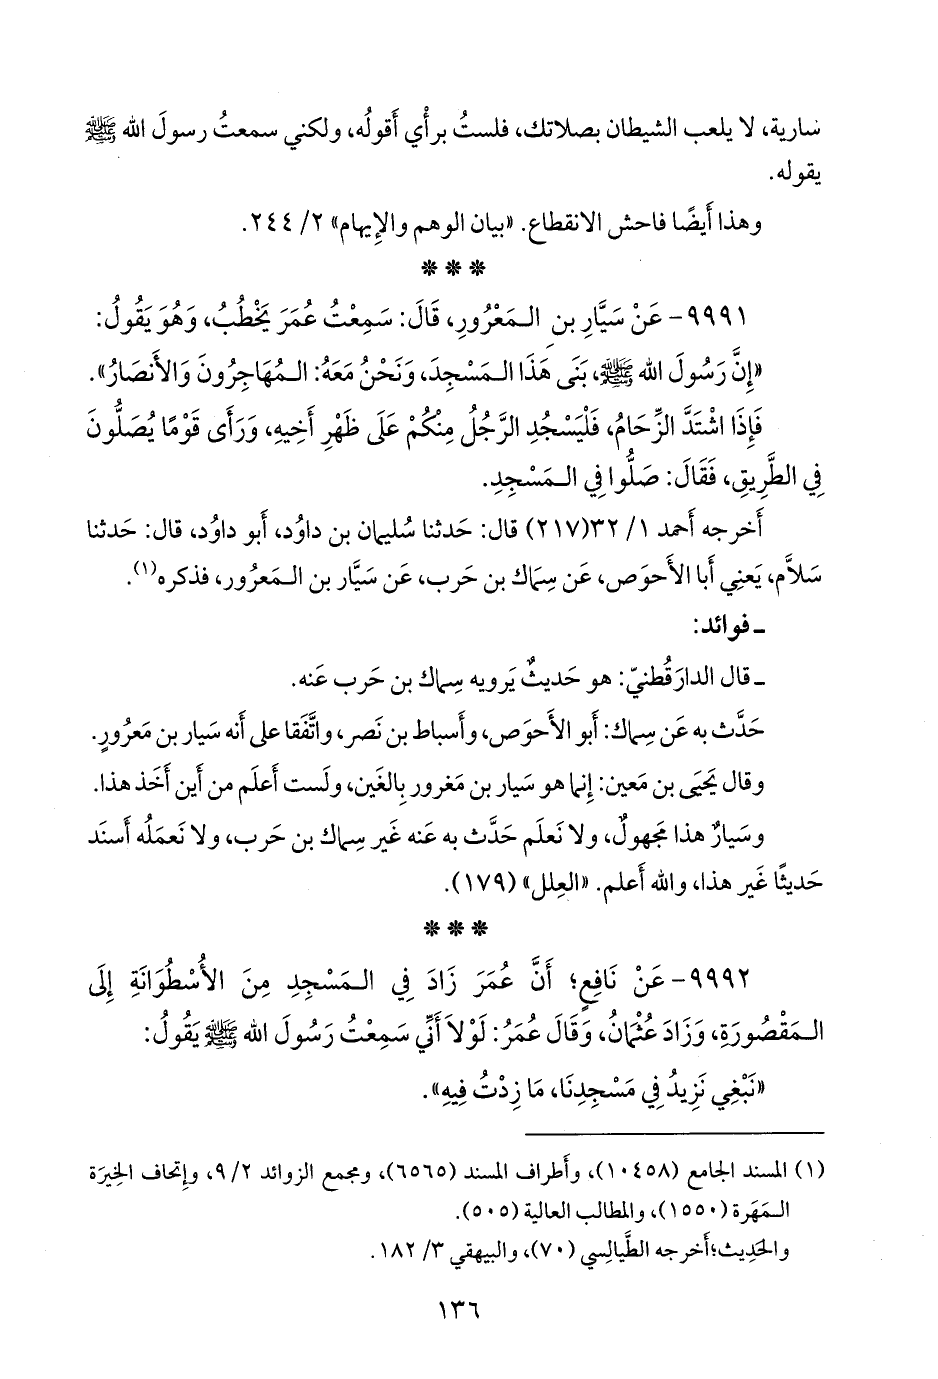 سارية، لا يلعب الشيطان بصلاتك، فلستُ برأْي أَقولُه، ولكني سمعتُ رسولَ الله ﷺ
يقوله.
وهذا أَيضًا فاحش الانقطاع. «بيان الوهم والإِيهام» ٢/ ٢٤٤.
* * *
٩٩٩١- عَنْ سَيَّارِ بنِ الـمَعْرُورِ، قَالَ: سَمِعْتُ عُمَرَ يَخْطُبُ، وَهُوَ يَقُولُ:
«إِنَّ رَسُولَ الله ﷺ، بَنَى هَذَا الـمَسْجِدَ، وَنَحْنُ مَعَهُ: الـمُهَاجِرُونَ وَالأَنصَارُ».
فَإِذَا اشْتَدَّ الزِّحَامُ، فَلْيَسْجُدِ الرَّجُلُ مِنْكُمْ عَلَى ظَهْرِ أَخِيهِ، وَرَأَى قَوْمًا يُصَلُّونَ
فِي الطَّرِيقِ، فَقَالَ: صَلُّوا فِي الـمَسْجِدِ.
أَخرجه أَحمد ١/ ٣٢(٢١٧) قال: حَدثنا سُليمان بن داوُد، أَبو داوُد، قال: حَدثنا
سَلاَّم، يَعنِي أَبا الأَحوَص، عَن سِمَاك بن حَرب، عَن سَيَّار بن الـمَعرُور، فذكره(١).
ـ فوائد:
ـ قال الدارَقُطنيّ: هو حَديثٌ يَرويه سِماك بن حَرب عَنه.
حَدَّث به عَن سِماك: أَبو الأَحوَص، وأَسباط بن نَصر، واتَّفَقا على أَنه سَيار بن مَعرُورٍ.
وقال يَحيَى بن مَعين: إِنما هو سَيار بن مَغرور بِالغَين، ولَست أَعلَم من أَين أَخَذ هذا.
وسَيارٌ هذا مَجهولٌ، ولا نَعلَم حَدَّث به عَنه غَير سِماك بن حَرب، ولا نَعمَلُه أَسنَد
حَديثًا غَير هذا، والله أَعلم. «العِلل» (١٧٩).
* * *
٩٩٩٢- عَنْ نَافِعٍ؛ أَنَّ عُمَرَ زَادَ فِي الـمَسْجِدِ مِنَ الأُسْطُوَانَةِ إِلَى
الـمَقْصُورَةِ، وَزَادَ عُثْمَانُ، وَقَالَ عُمَرُ: لَوْلاَ أَنِّي سَمِعْتُ رَسُولَ الله ﷺ يَقُولُ:
«نَبْغِي نَزِيدُ فِي مَسْجِدِنَا، مَا زِدْتُ فِيهِ».
(١) المسند الجامع (١٠٤٥٨)، وأَطراف المسند (٦٥٦٥)، ومجمع الزوائد ٢/ ٩، وإِتحاف الخِيرَة
الـمَهَرة (١٥٥٠)، والمطالب العالية (٥٠٥).
والحَدِيث؛ أَخرجه الطَّيالِسي (٧٠)، والبيهقي ٣/ ١٨٢.
١٣٦